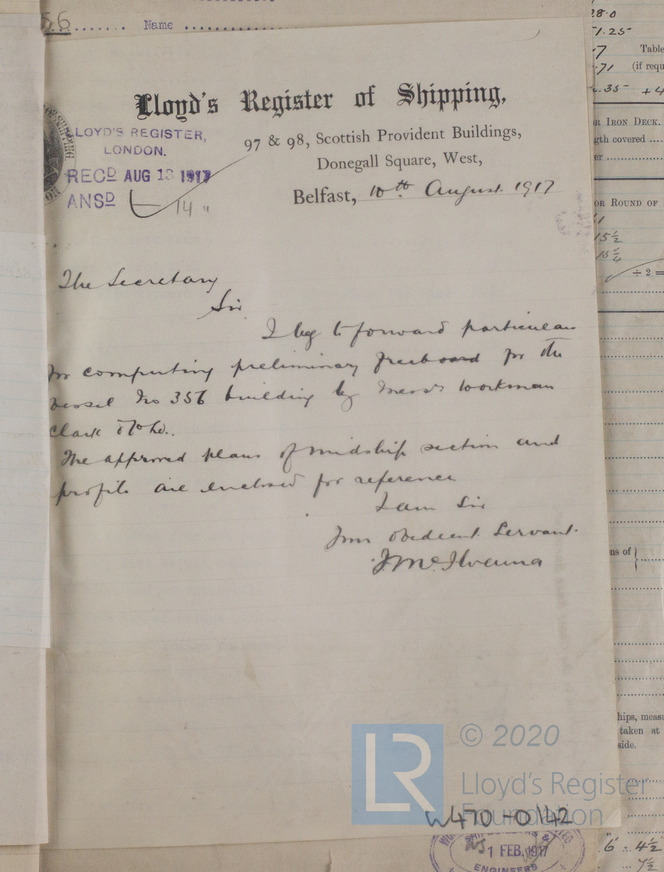 56 ....... Name ..................
Lloyd's Register of Shipping,
97 & 98, Scottish Provident Buildings,
Donegall Square, West,
Belfast, 10th August 1917
LLOYD'S REGISTER,
LONDON.
RECD AUG 13 1917
ANSD 14
The Secretary
Sir
I beg to forward particulars
for computing preliminary freeboard for the
vessel No 356 building by Messrs Workman
Clark & Co Ld..
The approved plans of midship section and
profile are enclosed for reference
I am Sir
Your obedient Servant.
J McIlvenna
28.0
1.25
7 Table
.71 (if requ
.35 + 4
OR IRON DECK.
gth covered ....
er
OR ROUND OF
15½
15½
÷ 2 =
ns of
hips, meas
taken at
side.
LR
© 2020
Lloyd's Register
Foundation
W470-0142
1 FEB. 1917
ENGINEERS
6 : 4½
7½